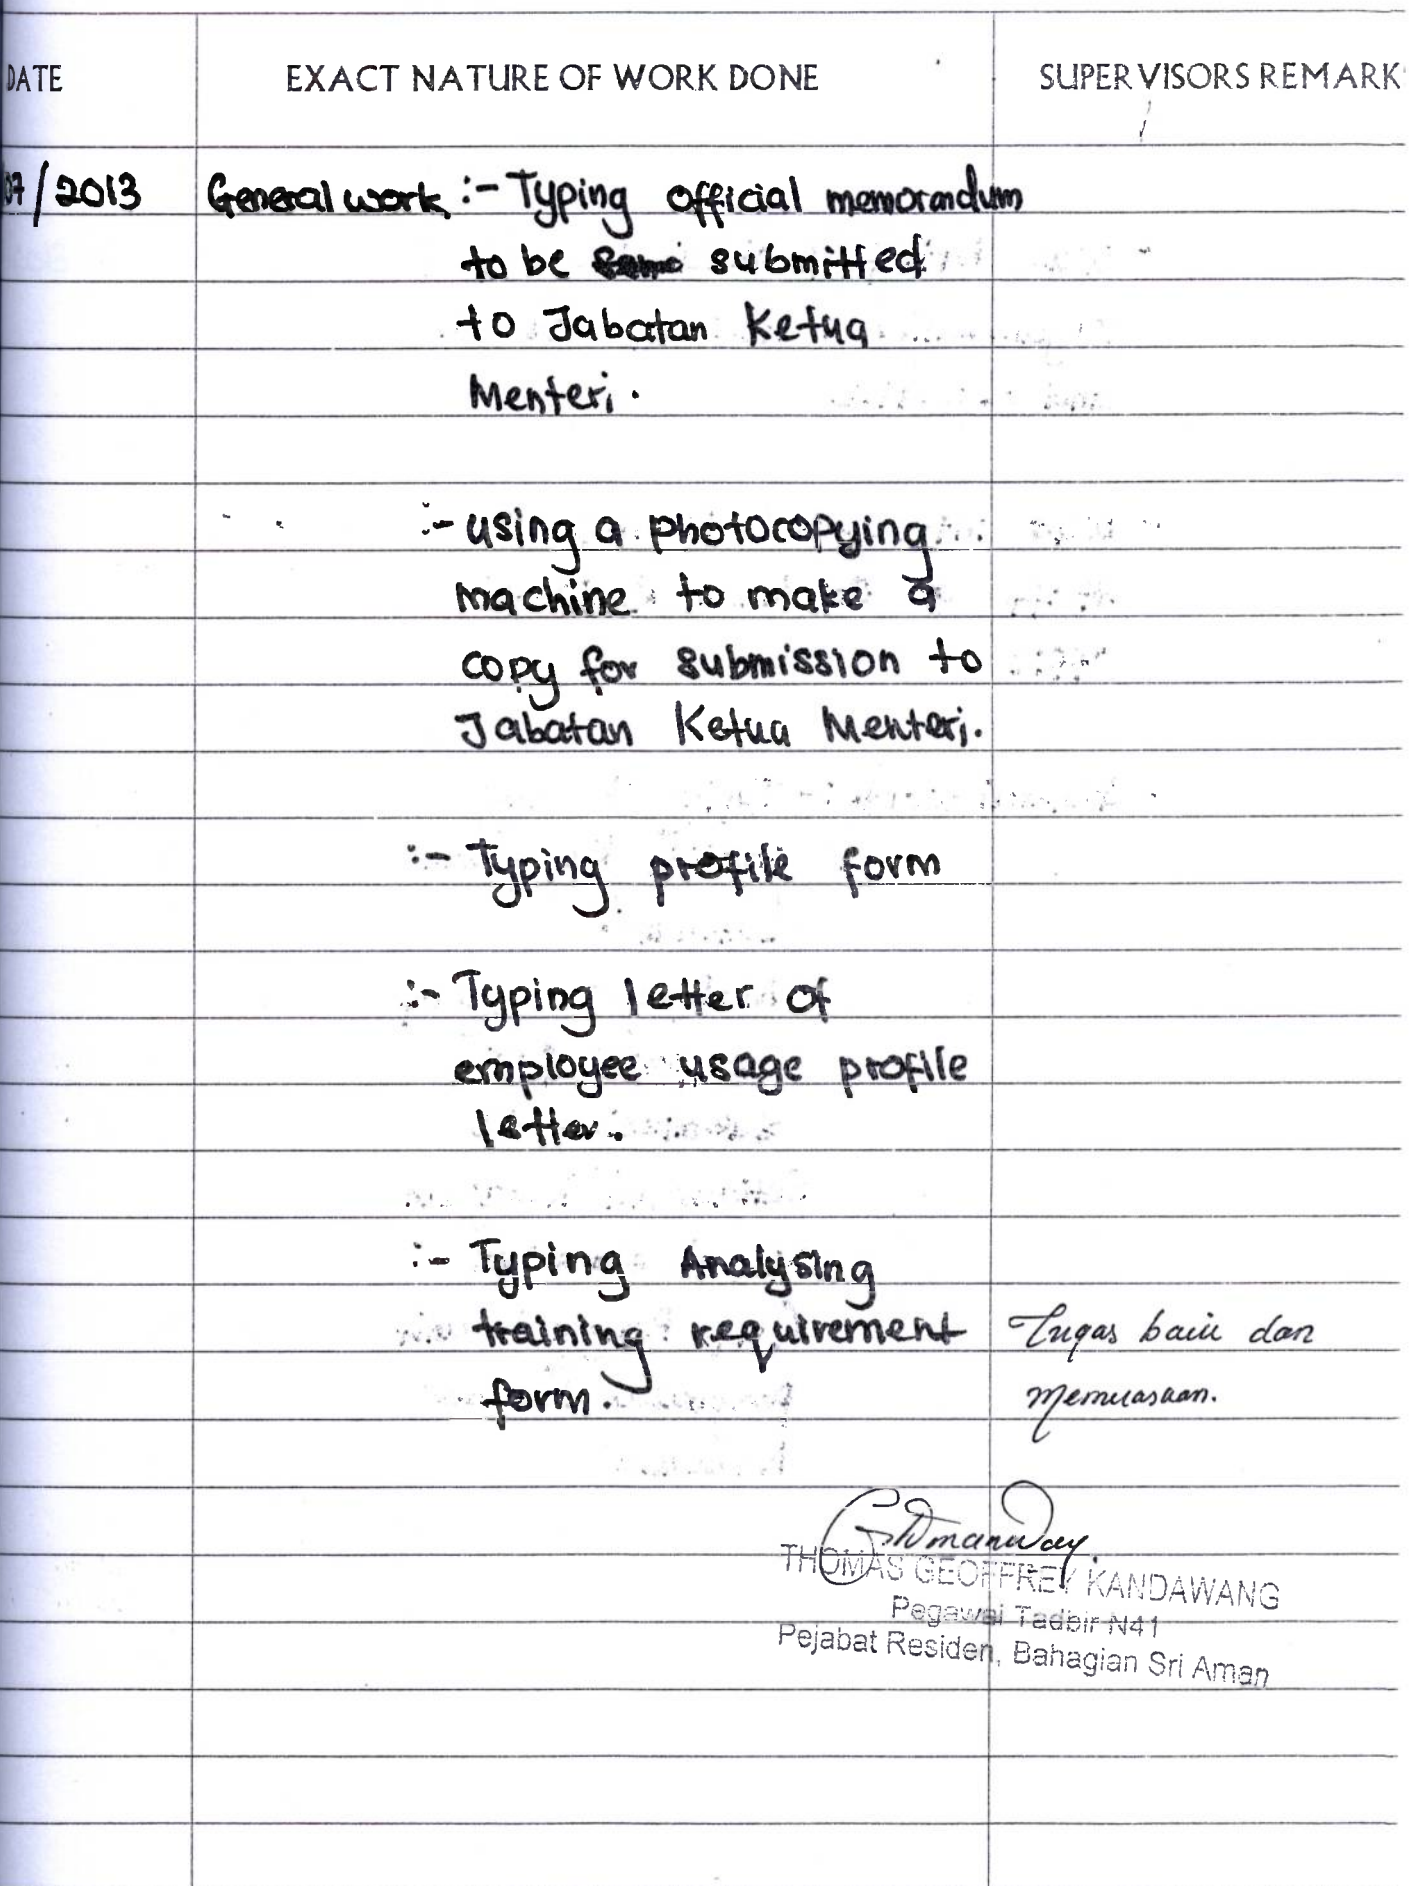 DATE EXACT NATURE OF WORK DONE SUPERVISORS REMARK
07/2013 General work :- Typing official memorandum
to be submitted
to Jabatan Ketua
Menteri.
:- using a photocopying
machine to make a
copy for submission to
Jabatan Ketua Menteri.
:- Typing profile form
:- Typing letter of
employee usage profile
letter.
:- Typing Analysing
training requirement Tugas baik dan
form. memuaskan.
THOMAS GEOFFREY KANDAWANG
Pegawai Tadbir N41
Pejabat Residen, Bahagian Sri Aman